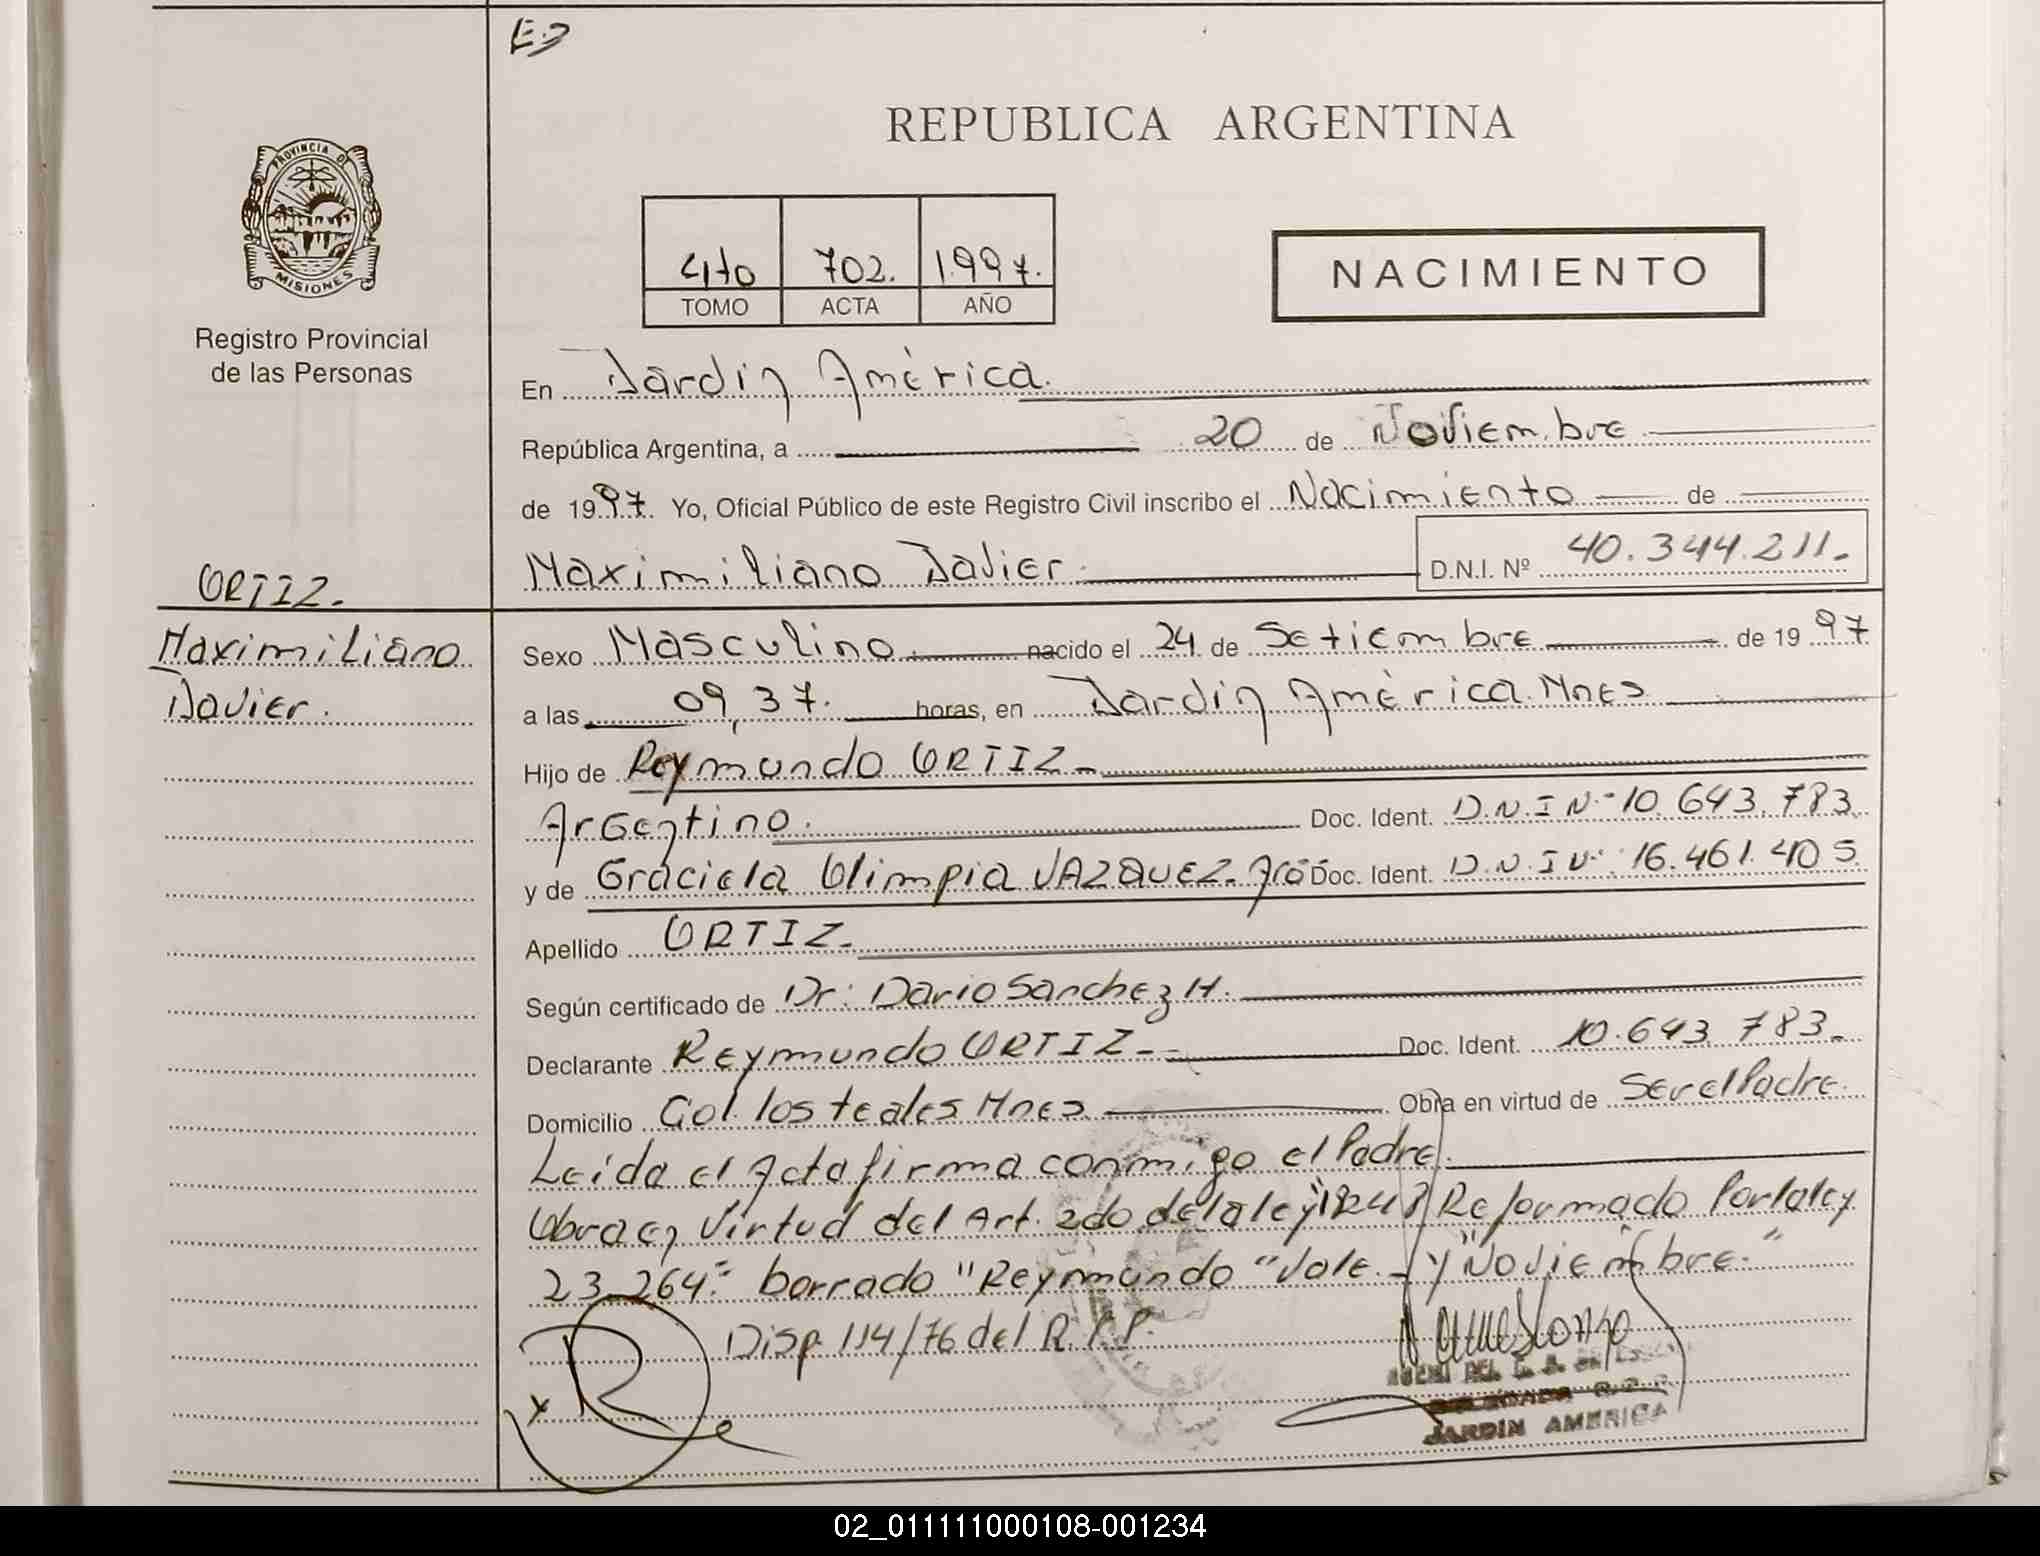 REPUBLICA ARGENTINA
PROVINCIA DE
MISIONES
Registro Provincial
de las Personas
4to 702. 1.997.
TOMO ACTA AÑO
NACIMIENTO
En Jardin América.
República Argentina, a 20 de Noviembre
de 1997. Yo, Oficial Público de este Registro Civil inscribo el Nacimiento de
Maximiliano Javier. D.N.I. Nº 40.344.211.
ORTIZ.
Maximiliano
Javier.
Sexo Masculino. nacido el 24 de Setiembre de 1997
a las 09,37. horas, en Jardin América. Mnes
Hijo de Reymundo ORTIZ
Argentino. Doc. Ident. D.N.I N.- 10.643.783.
y de Graciela Olimpia VAZQUEZ. Doc. Ident. D.N.I N.: 16.461.405
Apellido ORTIZ.
Según certificado de Dr: Dario Sanchez H.
Declarante Reymundo ORTIZ Doc. Ident. 10.643.783.
Domicilio Col. los teales Mnes Obra en virtud de Ser el Padre.
Leída el Acta firma conmigo el Padre.
Obra en Virtud del Art. 2do de la ley "18248 Reformado Por la ley
23.264." borrado "Reymundo" Vale. y "Noviembre."
Disp. 114/76 del R.P.P.
JARDIN AMERICA
02_011111000108-001234